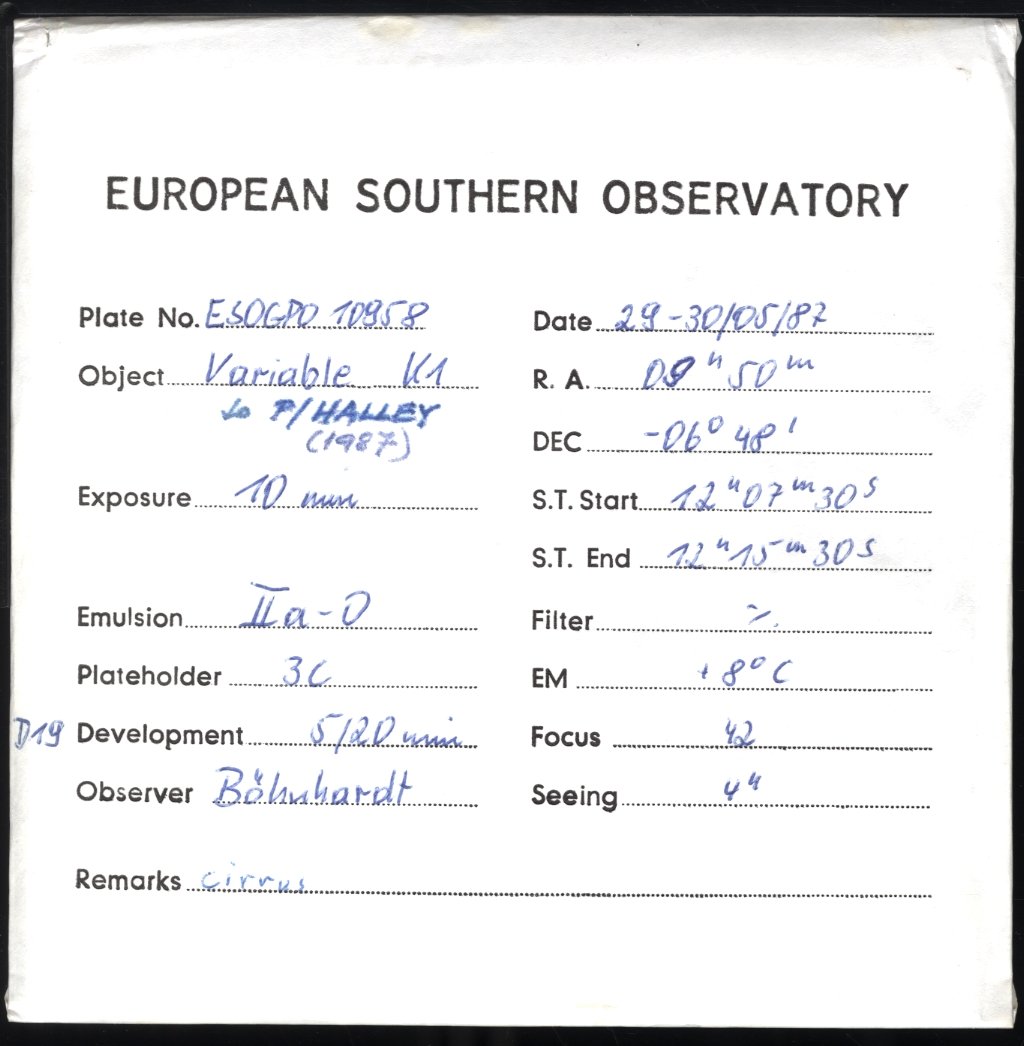 EUROPEAN SOUTHERN OBSERVATORY
Plate No. ESOGPO 10958
Date 29-30/05/87
Object Variable K1
R. A. 09h 50m
P/HALLEY
(1987)
DEC -06° 48'
Exposure 10 min
S.T. Start 12h 07m 30s
S.T. End 12h 15m 30s
Emulsion IIa-O
Filter
Plateholder 3C
EM +8°C
D19 Development 5/20 min
Focus 42
Observer Böhnhardt
Seeing 4"
Remarks cirrus